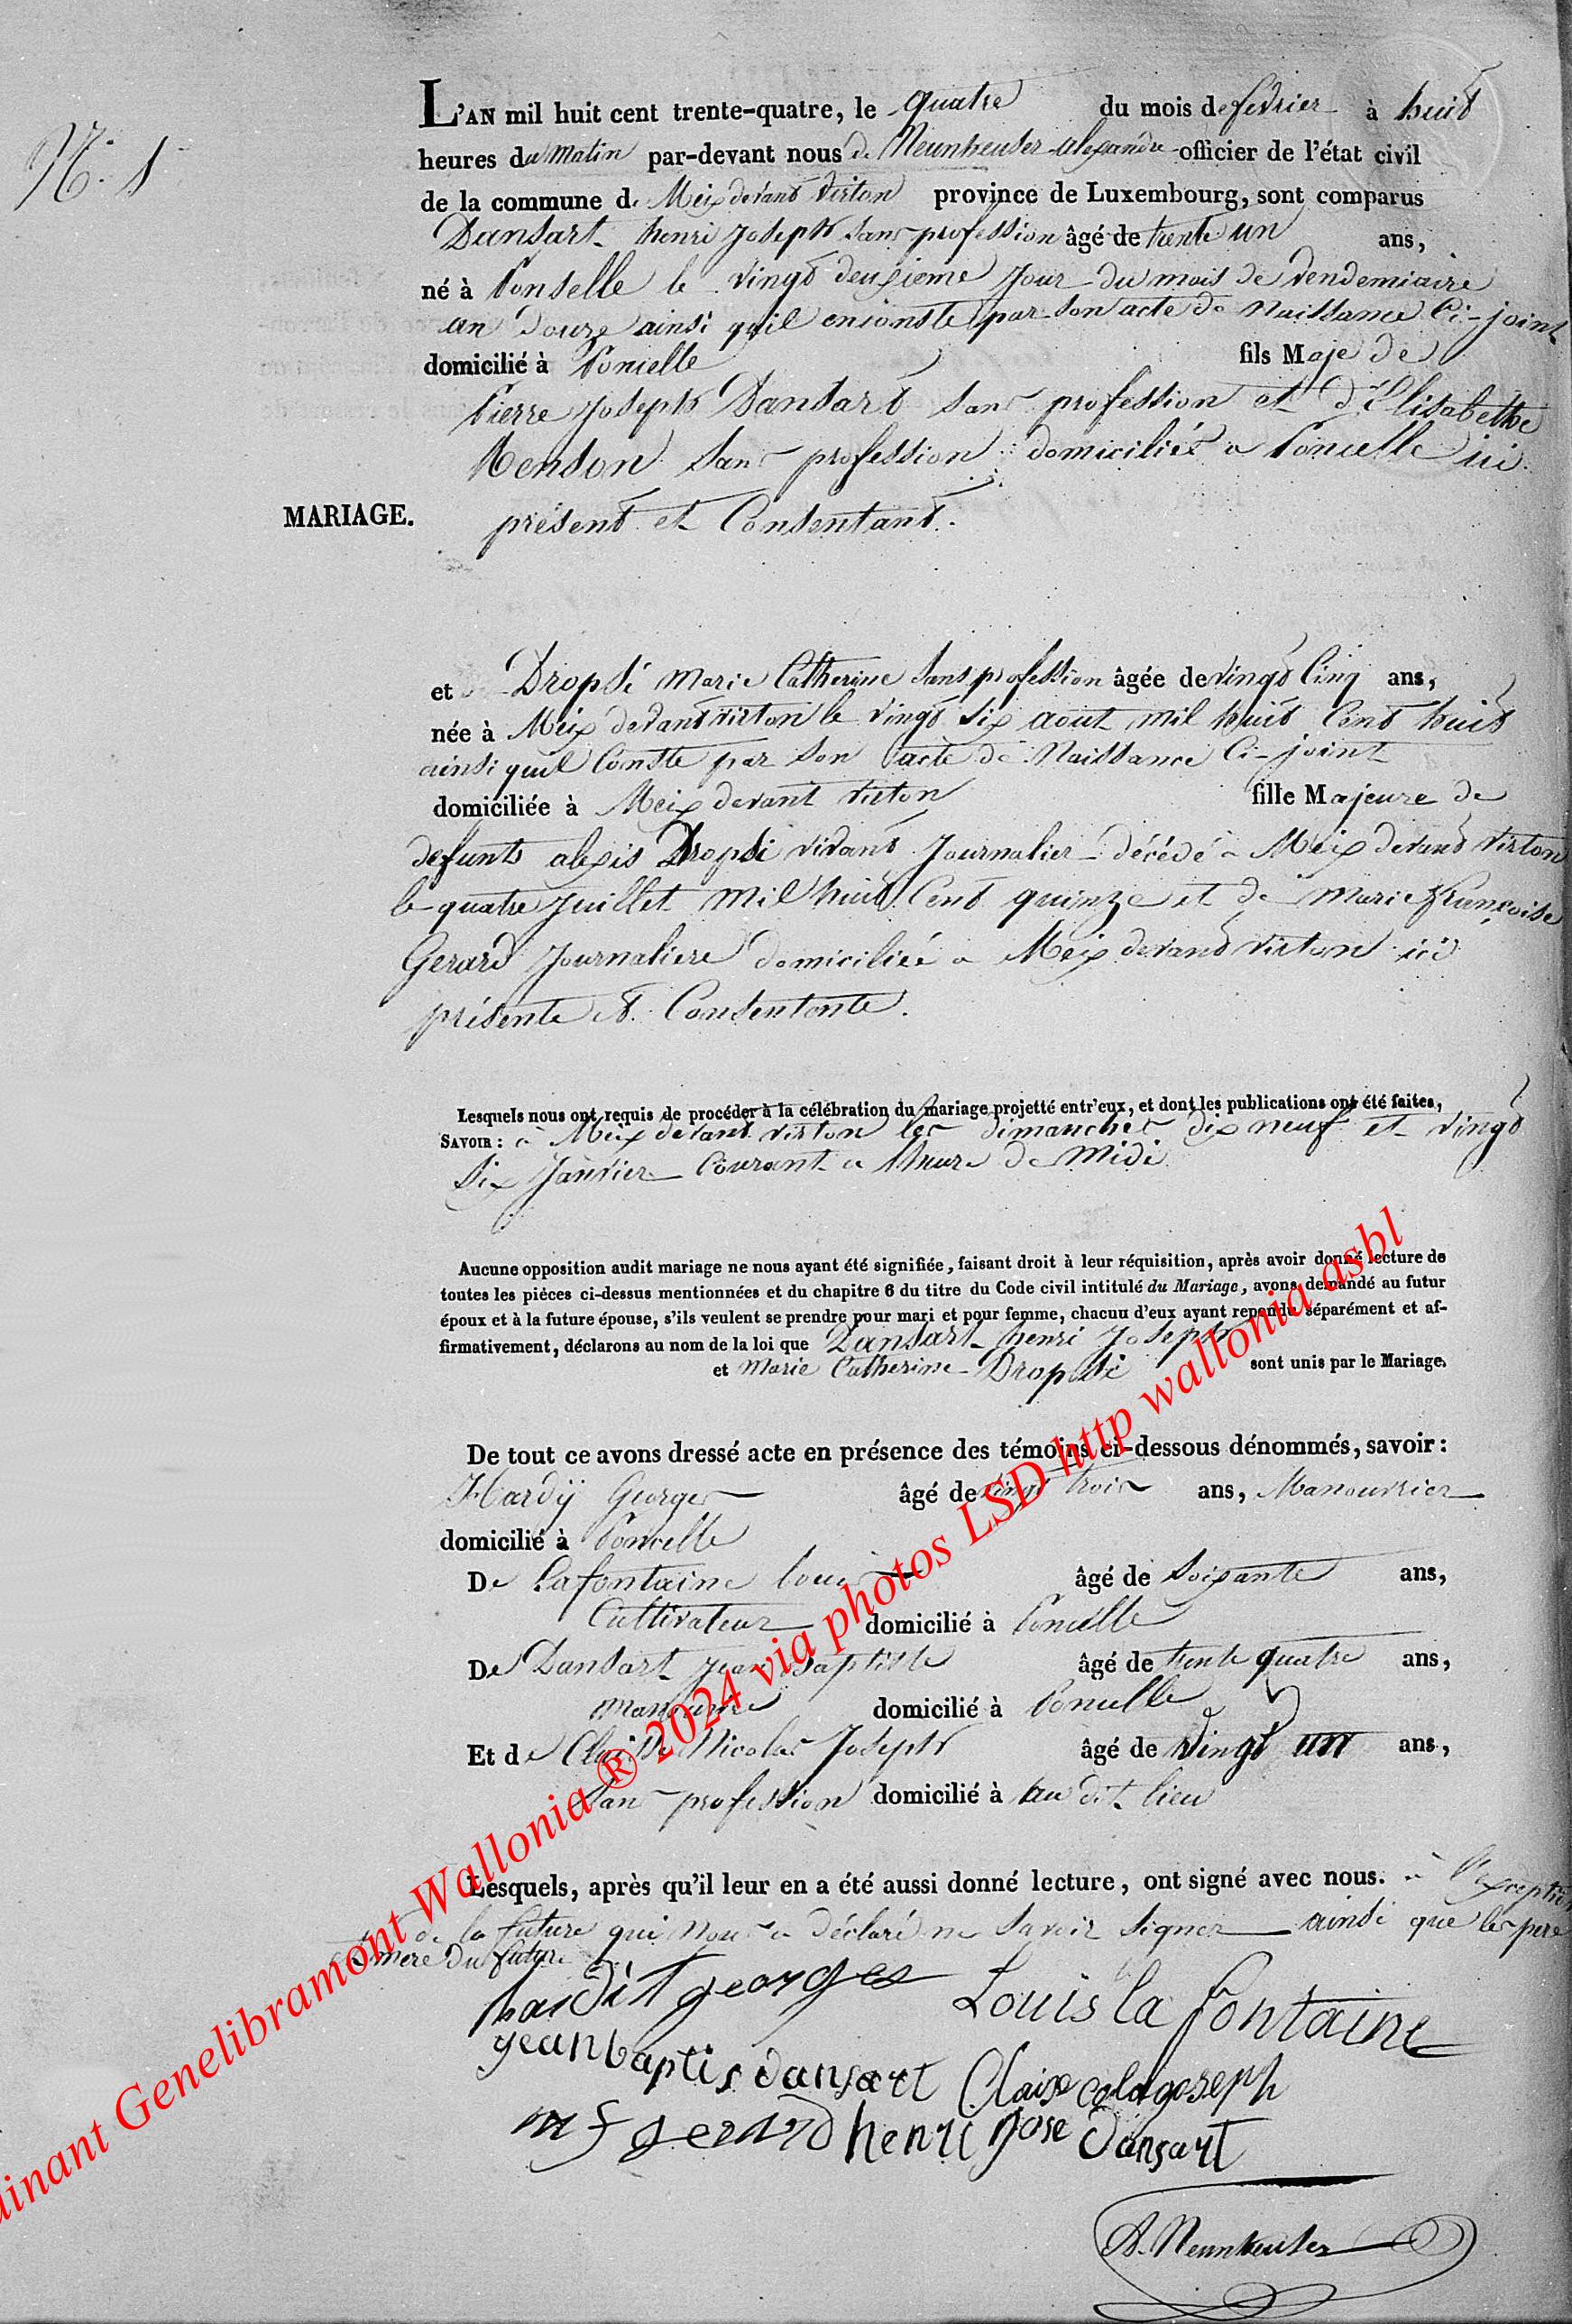 N° 1
L'AN mil huit cent trente-quatre, le quatre du mois de fevrier à huit
heures du Matin par-devant nous de Neunheuser alexandre officier de l'état civil
de la commune de Meix devant Virton province de Luxembourg, sont comparus
Dansart henri Joseph sans profession âgé de trente un ans,
né à Ponselle le vingt deuxieme Jour du mois de vendemiaire
an douze ainsi quil enconste par son acte de Naissance Ci-joint
domicilié à Poncelle fils Maje de
Pierre Joseph Dansart sans profession et d'Elisabethe
Henson sans profession domiciliés a Poncelle ici
présent et Consentant.
MARIAGE.
et Dropsi Marie Catherine sans profession âgée de vingt Cinq ans,
née à Meix devant virton le vingt six aout mil huit Cent huit
ainsi quil Conste par son acte de Naissance Ci-joint
domiciliée à Meix devant virton fille Majeure de
defunts alexis Dropsi vivant Journalier décédé a Meix devant virton
le quatre Juillet mil huit Cent quinze et de Marie Françoise
Gerard Journaliere domiciliée a Meix devant virton ici
présente et Consentante.
Lesquels nous ont requis de procéder à la célébration du mariage projetté entr'eux, et dont les publications ont été faites,
SAVOIR : a Meix devant virton les dimanches dix neuf et vingt
six Janvier Courant a l'heure de midi
Aucune opposition audit mariage ne nous ayant été signifiée, faisant droit à leur réquisition, après avoir donné lecture de
toutes les pièces ci-dessus mentionnées et du chapitre 6 du titre du Code civil intitulé du Mariage, avons demandé au futur
époux et à la future épouse, s'ils veulent se prendre pour mari et pour femme, chacun d'eux ayant repondu séparément et af-
firmativement, déclarons au nom de la loi que Dansart henri Joseph
et Marie Catherine Dropsi sont unis par le Mariage.
De tout ce avons dressé acte en présence des témoins ci-dessous dénommés, savoir :
Hardÿ Georges âgé de vingt trois ans, Manouvrier
domicilié à Poncelle
De Lafontaine Louis âgé de soixante ans,
Cultivateur domicilié à Poncelle
De Dansart Jean Baptiste âgé de trente quatre ans,
domicilié à Poncelle
Et de Claisse Nicolas Joseph âgé de vingt un ans,
sans profession domicilié à au dit lieu
Lesquels, après qu'il leur en a été aussi donné lecture, ont signé avec nous. à l'exception
de la future qui nous a déclaré ne savoir signer ainsi que les pere
et mere du future
hardit georges Louis la fontaine
jean baptis dansart Claise colagoseph
m f gerard henri Jose dansart
A. Neunheuser
dinant Genelibramont Wallonia ® 2024 via photos LSD http wallonia asbl